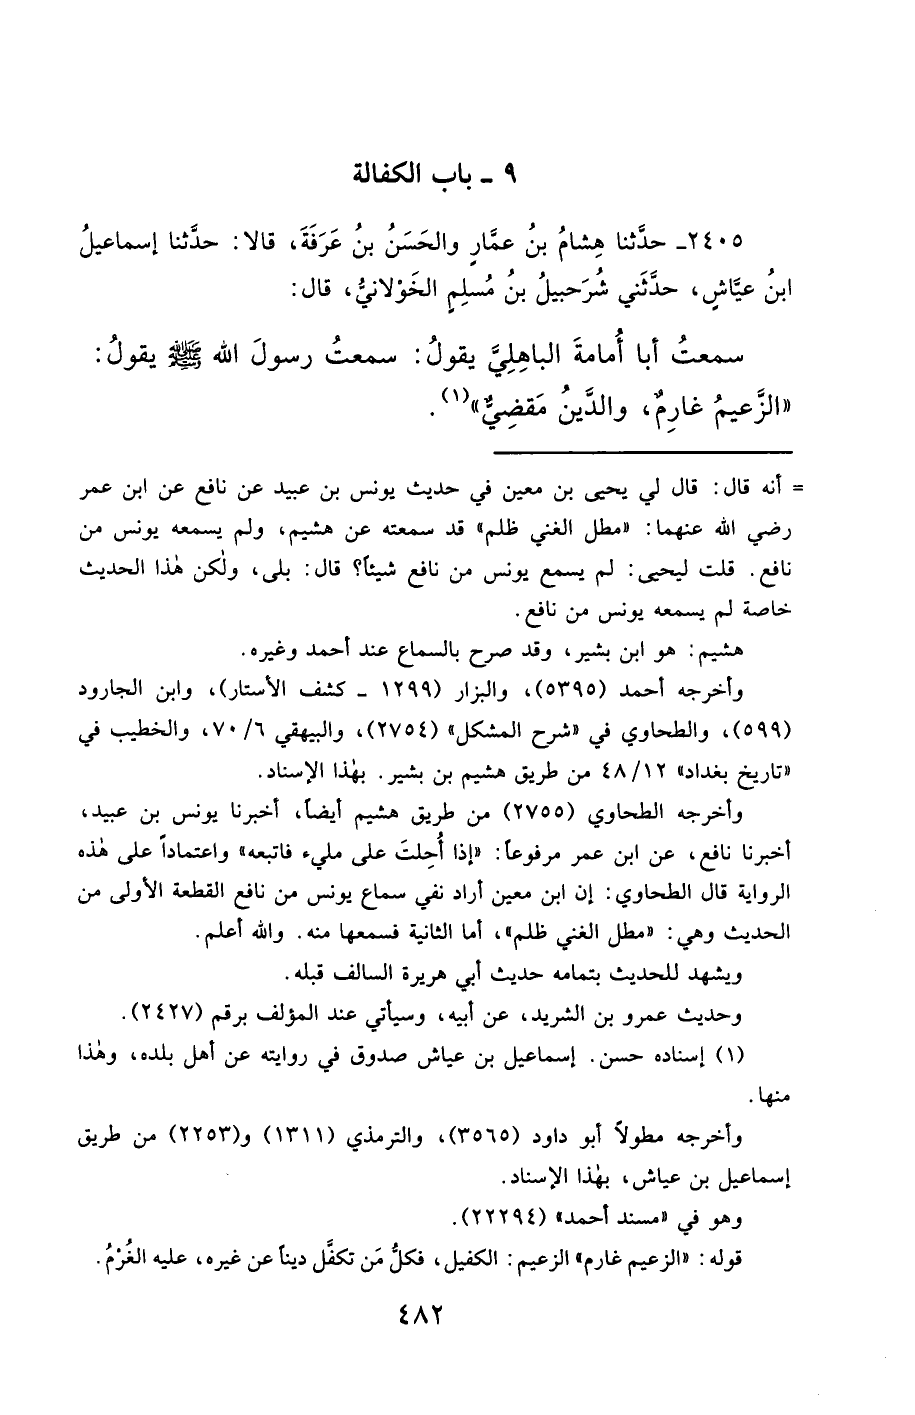 ٩ ـ باب الكفالة
٢٤٠٥ـ حدَّثنا هِشامُ بنُ عمَّارٍ والحَسَنُ بنُ عَرَفَةَ، قالا: حدَّثنا إسماعيلُ
ابنُ عيَّاشٍ، حدَّثَني شُرَحبيلُ بنُ مُسلِمٍ الخَوْلانيُّ، قال:
سمعتُ أبا أُمامةَ الباهِلِيَّ يقولُ: سمعتُ رسولَ الله ﷺ يقولُ:
«الزَّعيمُ غارِمٌ، والدَّينُ مَقضِيٌّ»(١).
= أنه قال: قال لي يحيى بن معين في حديث يونس بن عبيد عن نافع عن ابن عمر
رضي الله عنهما: «مطل الغني ظلم» قد سمعته عن هشيم، ولم يسمعه يونس من
نافع. قلت ليحيى: لم يسمع يونس من نافع شيئاً؟ قال: بلى، ولٰكن هٰذا الحديث
خاصة لم يسمعه يونس من نافع.
هشيم: هو ابن بشير، وقد صرح بالسماع عند أحمد وغيره.
وأخرجه أحمد (٥٣٩٥)، والبزار (١٢٩٩ ـ كشف الأستار)، وابن الجارود
(٥٩٩)، والطحاوي في «شرح المشكل» (٢٧٥٤)، والبيهقي ٦/ ٧٠، والخطيب في
«تاريخ بغداد» ١٢/ ٤٨ من طريق هشيم بن بشير. بهٰذا الإسناد.
وأخرجه الطحاوي (٢٧٥٥) من طريق هشيم أيضاً، أخبرنا يونس بن عبيد،
أخبرنا نافع، عن ابن عمر مرفوعاً: «إذا أُحِلتَ على مليء فاتبعه» واعتماداً على هٰذه
الرواية قال الطحاوي: إن ابن معين أراد نفي سماع يونس من نافع القطعة الأولى من
الحديث وهي: «مطل الغني ظلم»، أما الثانية فسمعها منه. والله أعلم.
ويشهد للحديث بتمامه حديث أبي هريرة السالف قبله.
وحديث عمرو بن الشريد، عن أبيه، وسيأتي عند المؤلف برقم (٢٤٢٧).
(١) إسناده حسن. إسماعيل بن عياش صدوق في روايته عن أهل بلده، وهٰذا
منها.
وأخرجه مطولاً أبو داود (٣٥٦٥)، والترمذي (١٣١١) و(٢٢٥٣) من طريق
إسماعيل بن عياش، بهٰذا الإسناد.
وهو في «مسند أحمد» (٢٢٢٩٤).
قوله: «الزعيم غارم» الزعيم: الكفيل، فكلُّ مَن تكفَّل ديناً عن غيره، عليه الغُرْمُ.
٤٨٢